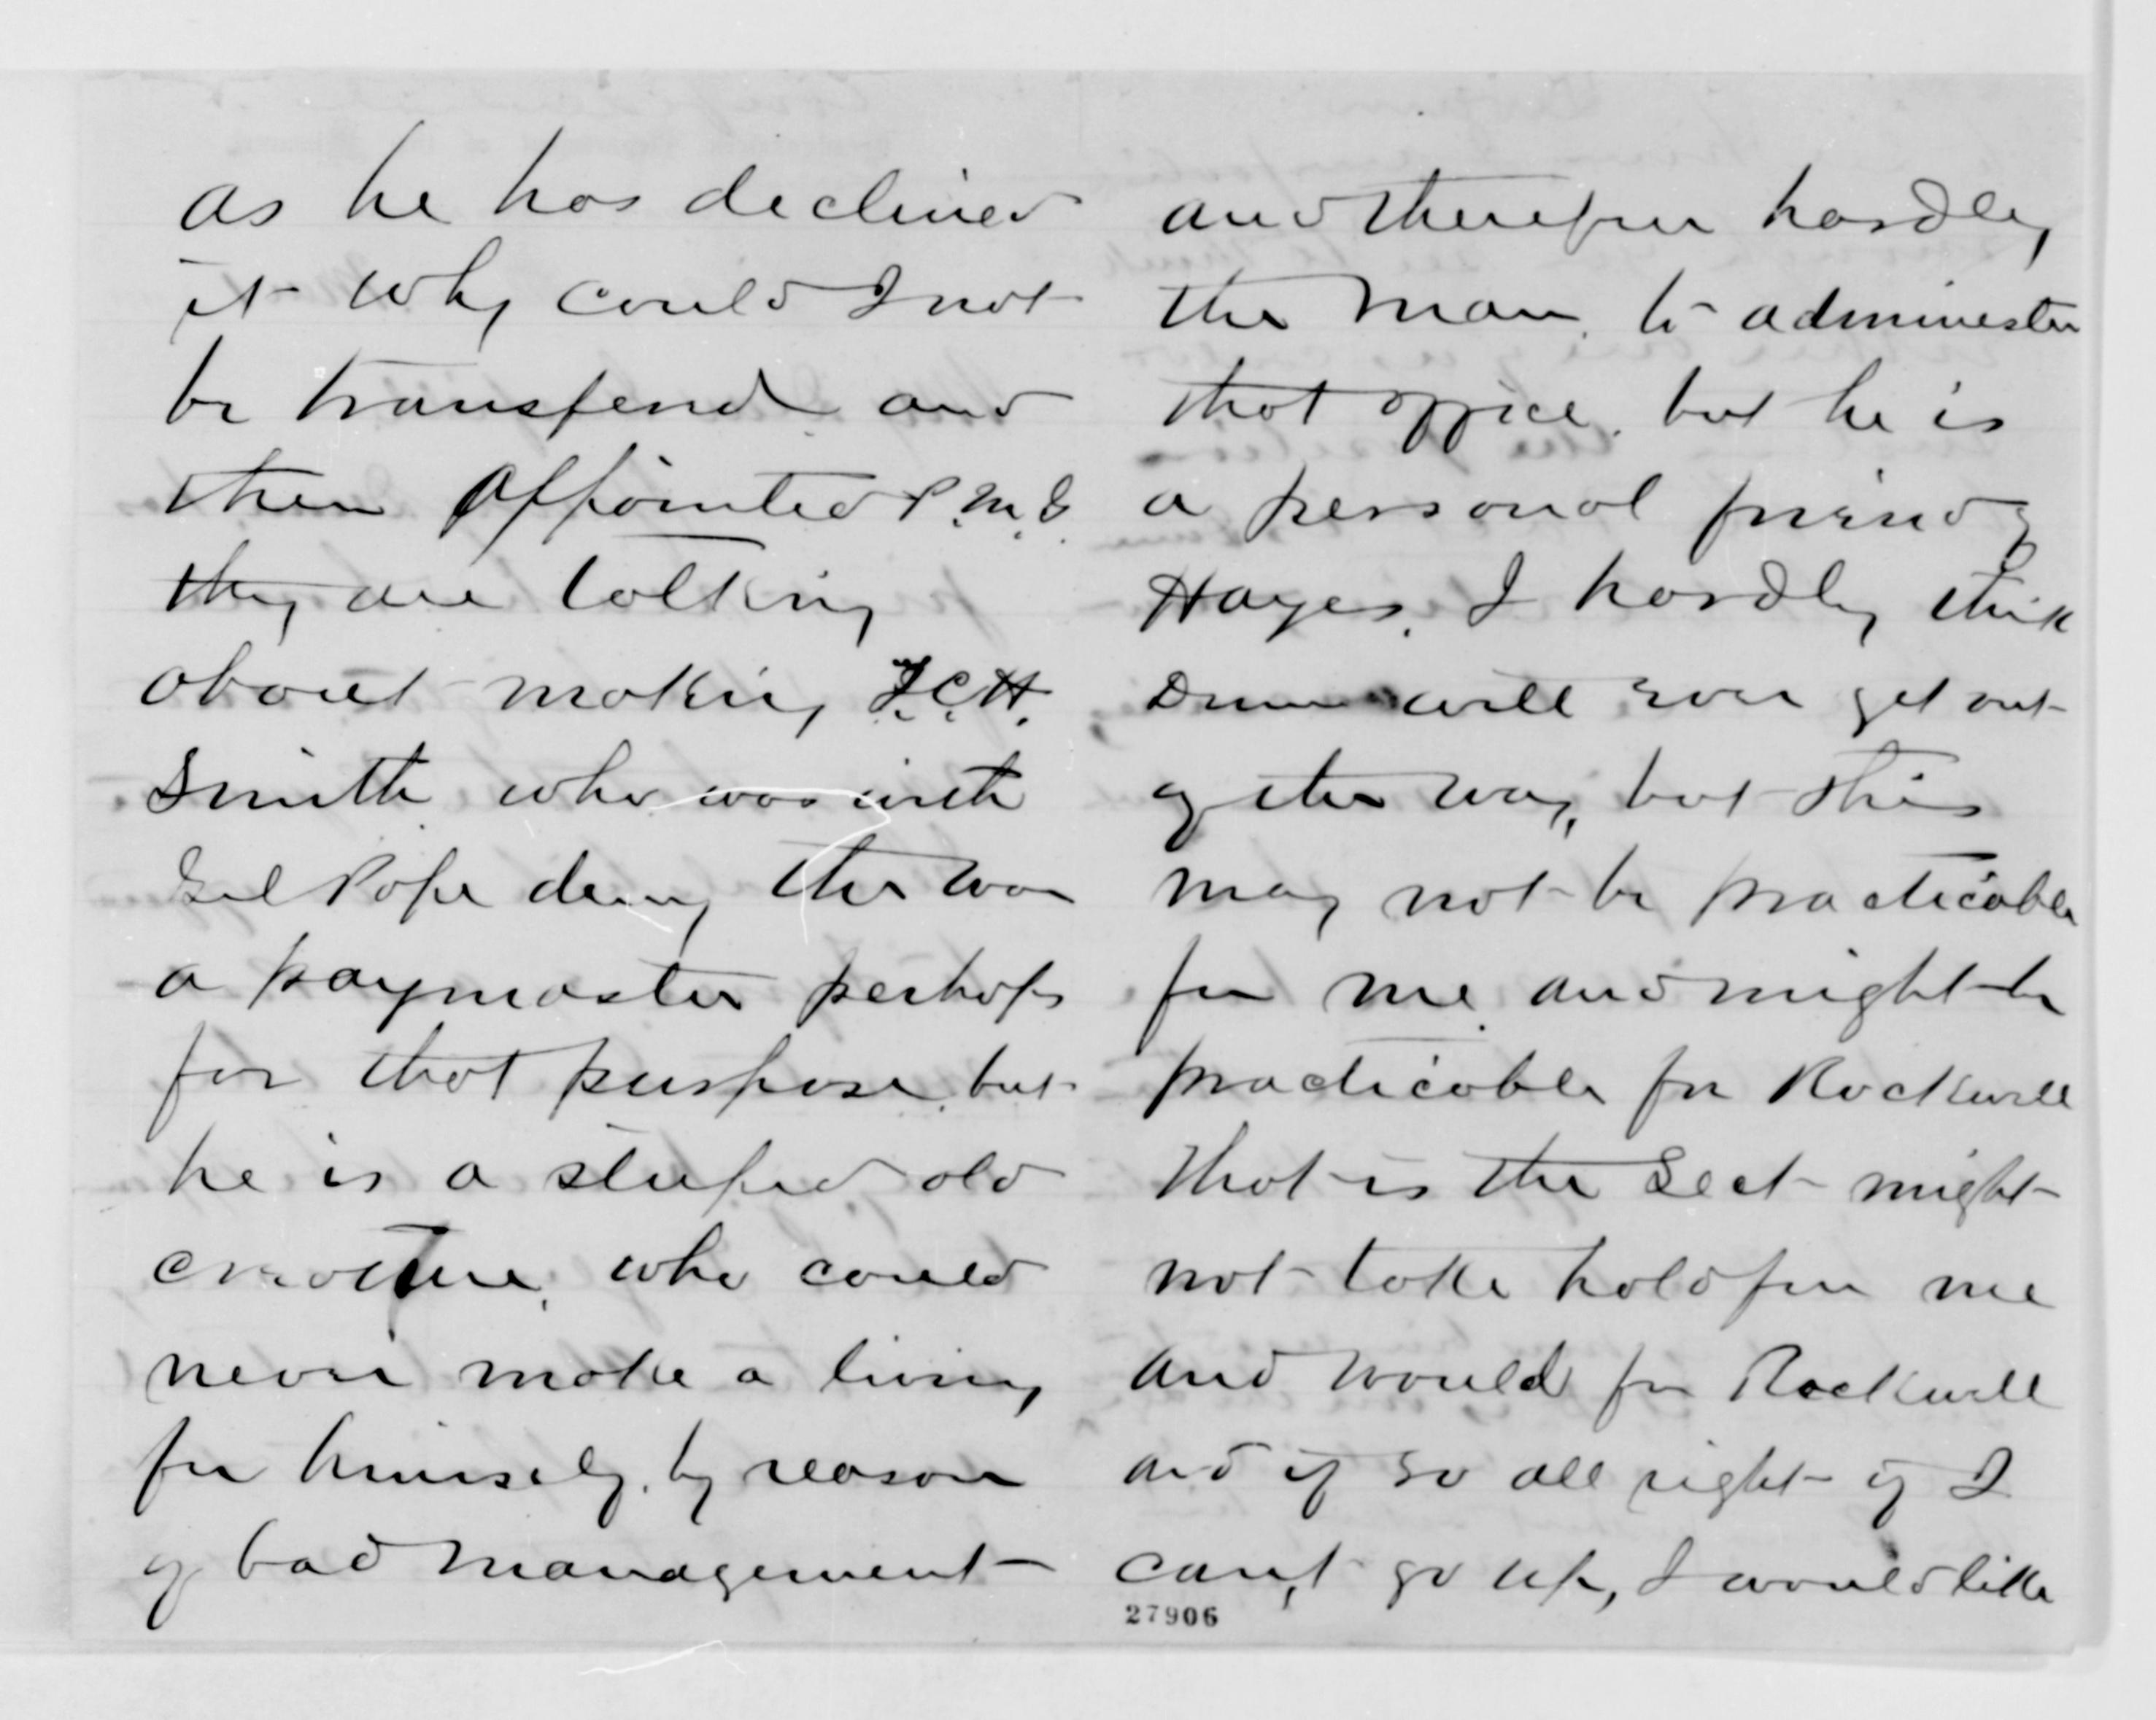 as he has declined
it why could I not
be transferred and
then Appointed P.M.G.
they are talking
about making T.C.H.
Smith who was with
Genl Pope during the war
a paymaster perhaps
for that purpose, but
he is a stupid old
creature, who could
never make a living
for himself, by reason
of bad management
and therefore hardly
the man to administer
that office, but he is
a personal friend of
Hayes. I hardly think
Drum will ever get out
of the way, but this
may not be practicable
for me and might be
practicable for Rockwell
that is the Sect might
not take hold for me
and would for Rockwell
and if so all right if I
can't go up, I would like
27906